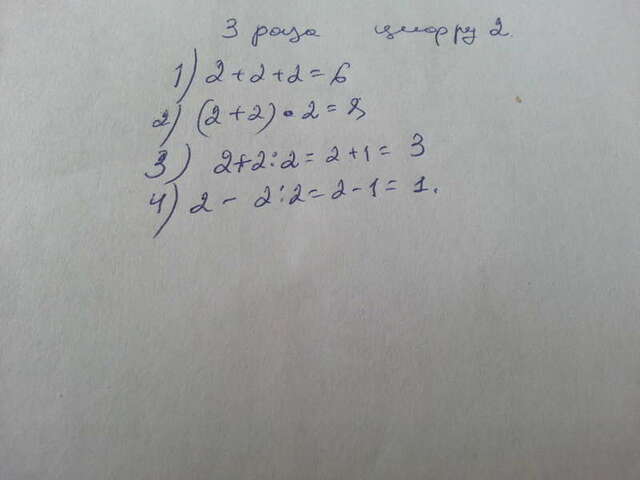 3 раза цифру 2.
1) 2+2+2=6
2) (2+2)•2=8
3) 2+2:2=2+1=3
4) 2-2:2=2-1=1.